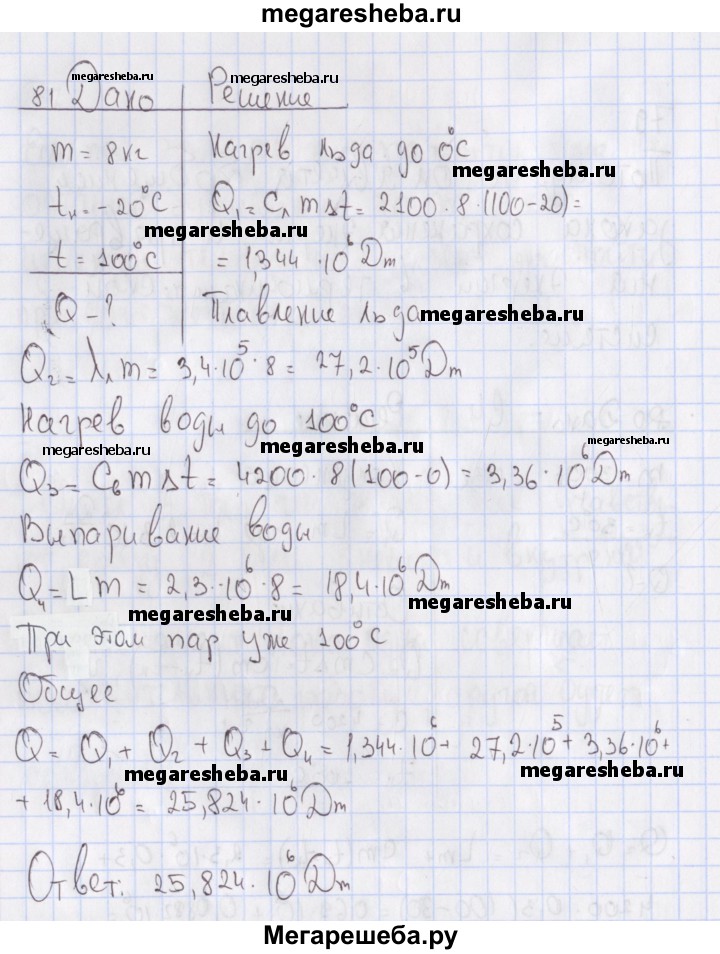 megaresheba.ru
81 Дано Решение
megaresheba.ru megaresheba.ru
m = 8 кг Нагрев льда до 0°C
megaresheba.ru
tн = -20°C Q₁ = Cл m Δt = 2100 · 8 · (100-20) =
megaresheba.ru
t = 100°C = 1,344 · 10⁶ Дж
Q - ? Плавление льда megaresheba.ru
Q₂ = λл m = 3,4 · 10⁵ · 8 = 27,2 · 10⁵ Дж
Нагрев воды до 100°C
megaresheba.ru megaresheba.ru megaresheba.ru
Q₃ = Cв m Δt = 4200 · 8 (100-0) = 3,36 · 10⁶ Дж
Выпаривание воды
Q₄ = L m = 2,3 · 10⁶ · 8 = 18,4 · 10⁶ Дж
megaresheba.ru megaresheba.ru
При этом пар уже 100°C
Общее
Q = Q₁ + Q₂ + Q₃ + Q₄ = 1,344 · 10⁶ + 27,2 · 10⁵ + 3,36 · 10⁶ +
megaresheba.ru megaresheba.ru
+ 18,4 · 10⁶ = 25,824 · 10⁶ Дж
Ответ: 25,824 · 10⁶ Дж
Мегарешеба.ру